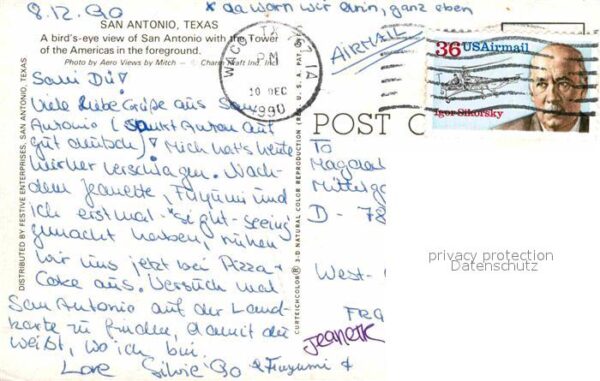 8.12.90
* da warn wir drin, ganz oben
SAN ANTONIO, TEXAS
A bird's-eye view of San Antonio with the Tower
of the Americas in the foreground.
Photo by Aero Views by Mitch — © Charm Craft Ind. Inc.
AIRMAIL
WACO, TX
PM
10 DEC
1990
36 USAirmail
Igor Sikorsky
Sali Du!
Viele liebe Grüße aus San
Antonio (Sankt Anton auf
gut deutsch)! Mich hat's heute
hierher verschlagen. Nach-
dem Jeanette, Fuyumi und
ich erstmal "sight-seeing"
gemacht haben, ruhen
wir uns jetzt bei Pizza +
Coke aus. Versuch mal
San Antonio auf der Land-
karte zu finden, damit du
weißt, wo ich bin.
Love Silvie & Fuyumi &
Jeanette
DISTRIBUTED BY FESTIVE ENTERPRISES, SAN ANTONIO, TEXAS
CURTEICHCOLOR® 3-D NATURAL COLOR REPRODUCTION (REG. U.S.A. PAT. OFF.)
POST C
To
Magdal
Mittelga
D - 78
West-
FRG
privacy protection
Datenschutz